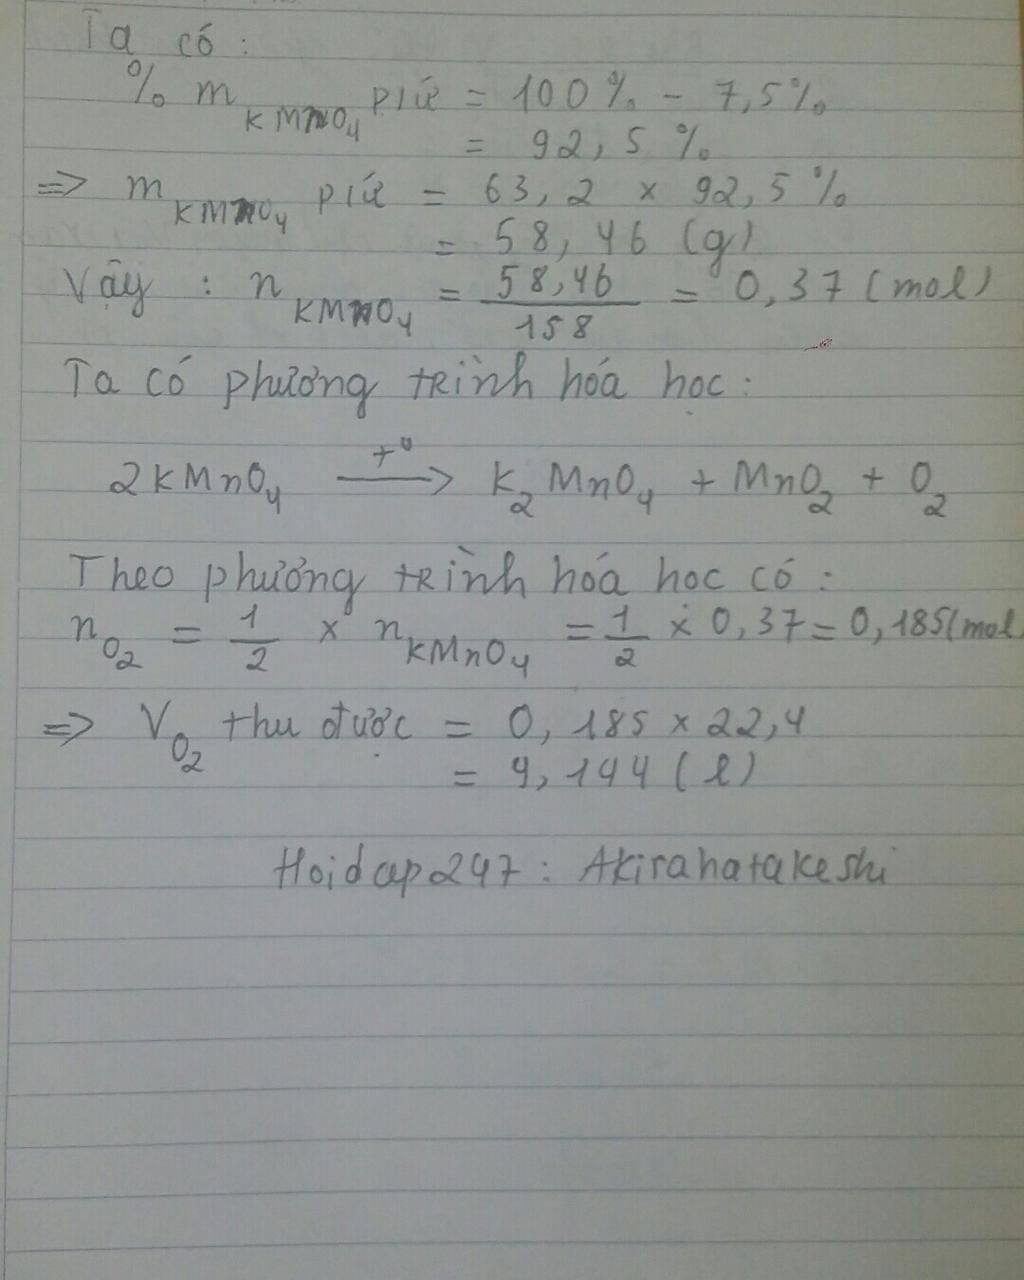 Ta có:
% m KMnO₄ pứ = 100% - 7,5%
= 92,5 %
=> m KMnO₄ pứ = 63,2 x 92,5%
= 58,46 (g)
Vậy : n KMnO₄ = 58,46/158 = 0,37 (mol)
Ta có phương trình hóa học:
2KMnO₄ —t⁰→ K₂MnO₄ + MnO₂ + O₂
Theo phương trình hóa học có:
n O₂ = 1/2 x n KMnO₄ = 1/2 x 0,37 = 0,185(mol
=> V O₂ thu được = 0,185 x 22,4
= 4,144 (l)
Hoidap247: Akirahatakeshi